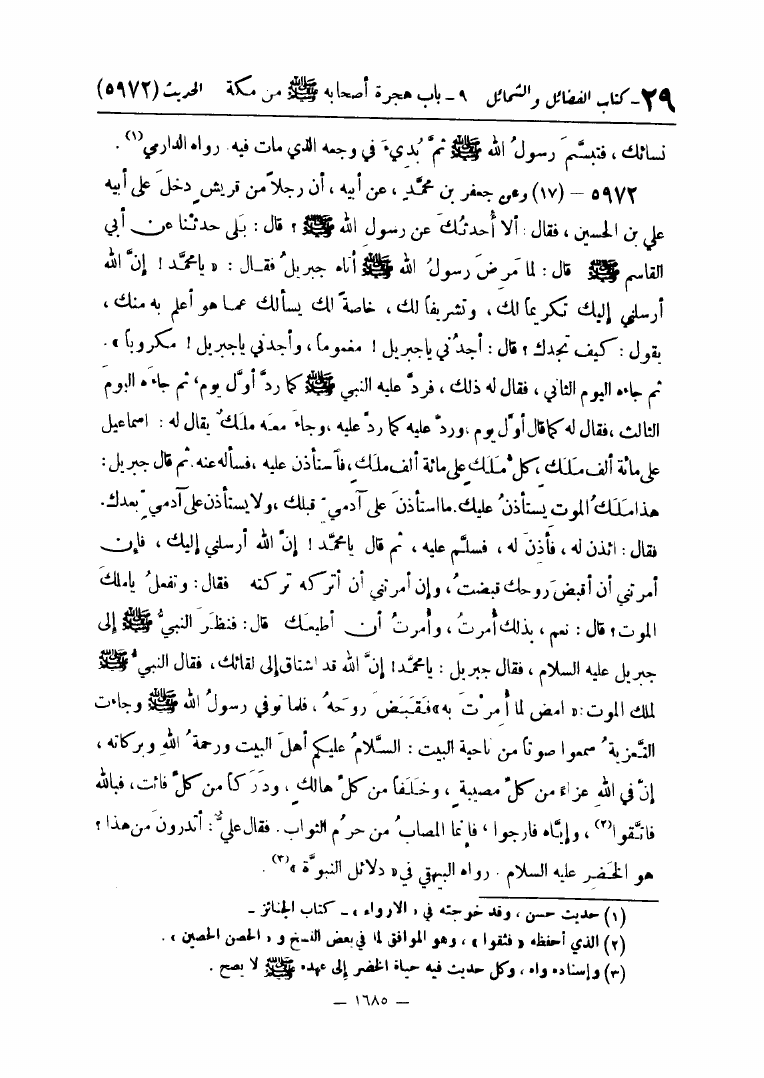 ٢٩ - كتاب الفضائل والشمائل ٩ - باب هجرة أصحابه ﷺ من مكة الحديث (٥٩٧٢)
نسائك ، فتبسَّمَ رسولُ الله ﷺ ثمَّ بُديءَ في وجعه الذي مات فيه. رواه الدارمي(١) .
٥٩٧٢ – (١٧) وعن جعفر بن محمَّد ، عن أبيه ، أن رجلاً من قريش دخلَ على أبيه
علي بن الحسين ، فقال : ألا أُحدثُكَ عن رسول الله ﷺ ؟ قال : بَلى حدثْنا عن أبي
القاسم ﷺ قال : لما مَرِضَ رسولُ الله ﷺ أتاه جبريلُ فقال : « يا محمَّد ! إنَّ الله
أرسلني إليك تكريماً لك ، وتشريفاً لك ، خاصةً لك يسألك عما هو أعلم به منك ،
يقول : كيف تجدك ؟ قال : أجدُني يا جبريل ! مغموماً ، وأجدني يا جبريل ! مكروباً » .
ثم جاءه اليوم الثاني ، فقال له ذلك ، فردَّ عليه النبي ﷺ كما ردَّ أوَّل يوم ، ثم جاءَه اليومَ
الثالث ، فقال له كما قال أوَّل يوم ، وردَّ عليه كما ردَّ عليه ، وجاءَ معه ملكٌ يقال له : اسماعيل
على مائة ألف ملَك ، كلُّ ملَكٍ على مائة ألف ملَك ، فاستأذن عليه ، فسأله عنه. ثم قال جبريل :
هذا ملَكُ الموت يستأذنُ عليك. ما استأذنَ على آدميّ قبلك ، ولا يستأذن على آدميّ بعدك.
فقال : ائذن له ، فأذِنَ له ، فسلَّم عليه ، ثم قال يا محمَّد ! إنَّ الله أرسلني إليك ، فإن
أمرتني أن أقبضَ روحك قبضتُ ، وإن أمرتني أن أتركه تركته فقال : وتفعلُ يا ملكَ
الموت ؟ قال : نعم ، بذلك أُمرتُ ، وأُمرتُ أن أطيعَك قال : فنظرَ النبيُّ ﷺ إلى
جبريل عليه السلام ، فقال جبريل : يا محمَّد ! إنَّ الله قد اشتاق إلى لقائك ، فقال النبيُّ ﷺ
لملك الموت : « امض لما أُمِرْتَ به » فقَبَضَ روحَهُ ، فلما توفي رسولُ الله ﷺ وجاءت
التَّعزيةُ سمعوا صوتاً من ناحية البيت : السَّلامُ عليكم أهلَ البيت ورحمةُ اللهِ وبركاته ،
إنَّ في اللهِ عزاءً من كلِّ مصيبةٍ ، وخلَفاً من كلِّ هالكٍ ، ودَرَكاً من كلِّ فائت ، فبالله
فاتَّقوا(٢) ، وإيَّاه فارجوا ، فإنما المصابُ من حرُم الثواب. فقال عليٌّ : أتدرونَ من هذا ؟
هو الخَضر عليه السلام . رواه البيهقي في « دلائل النبوَّة »(٣) .
(١) حديث حسن ، وقد خرجته في « الارواء » – كتاب الجنائز –
(٢) الذي أحفظه « فثقوا » ، وهو الموافق لما في بعض النسخ و « الحصن الحصين » .
(٣) وإسناده واه ، وكل حديث فيه حياة الخضر إلى عهده ﷺ لا يصح .
– ١٦٨٥ –